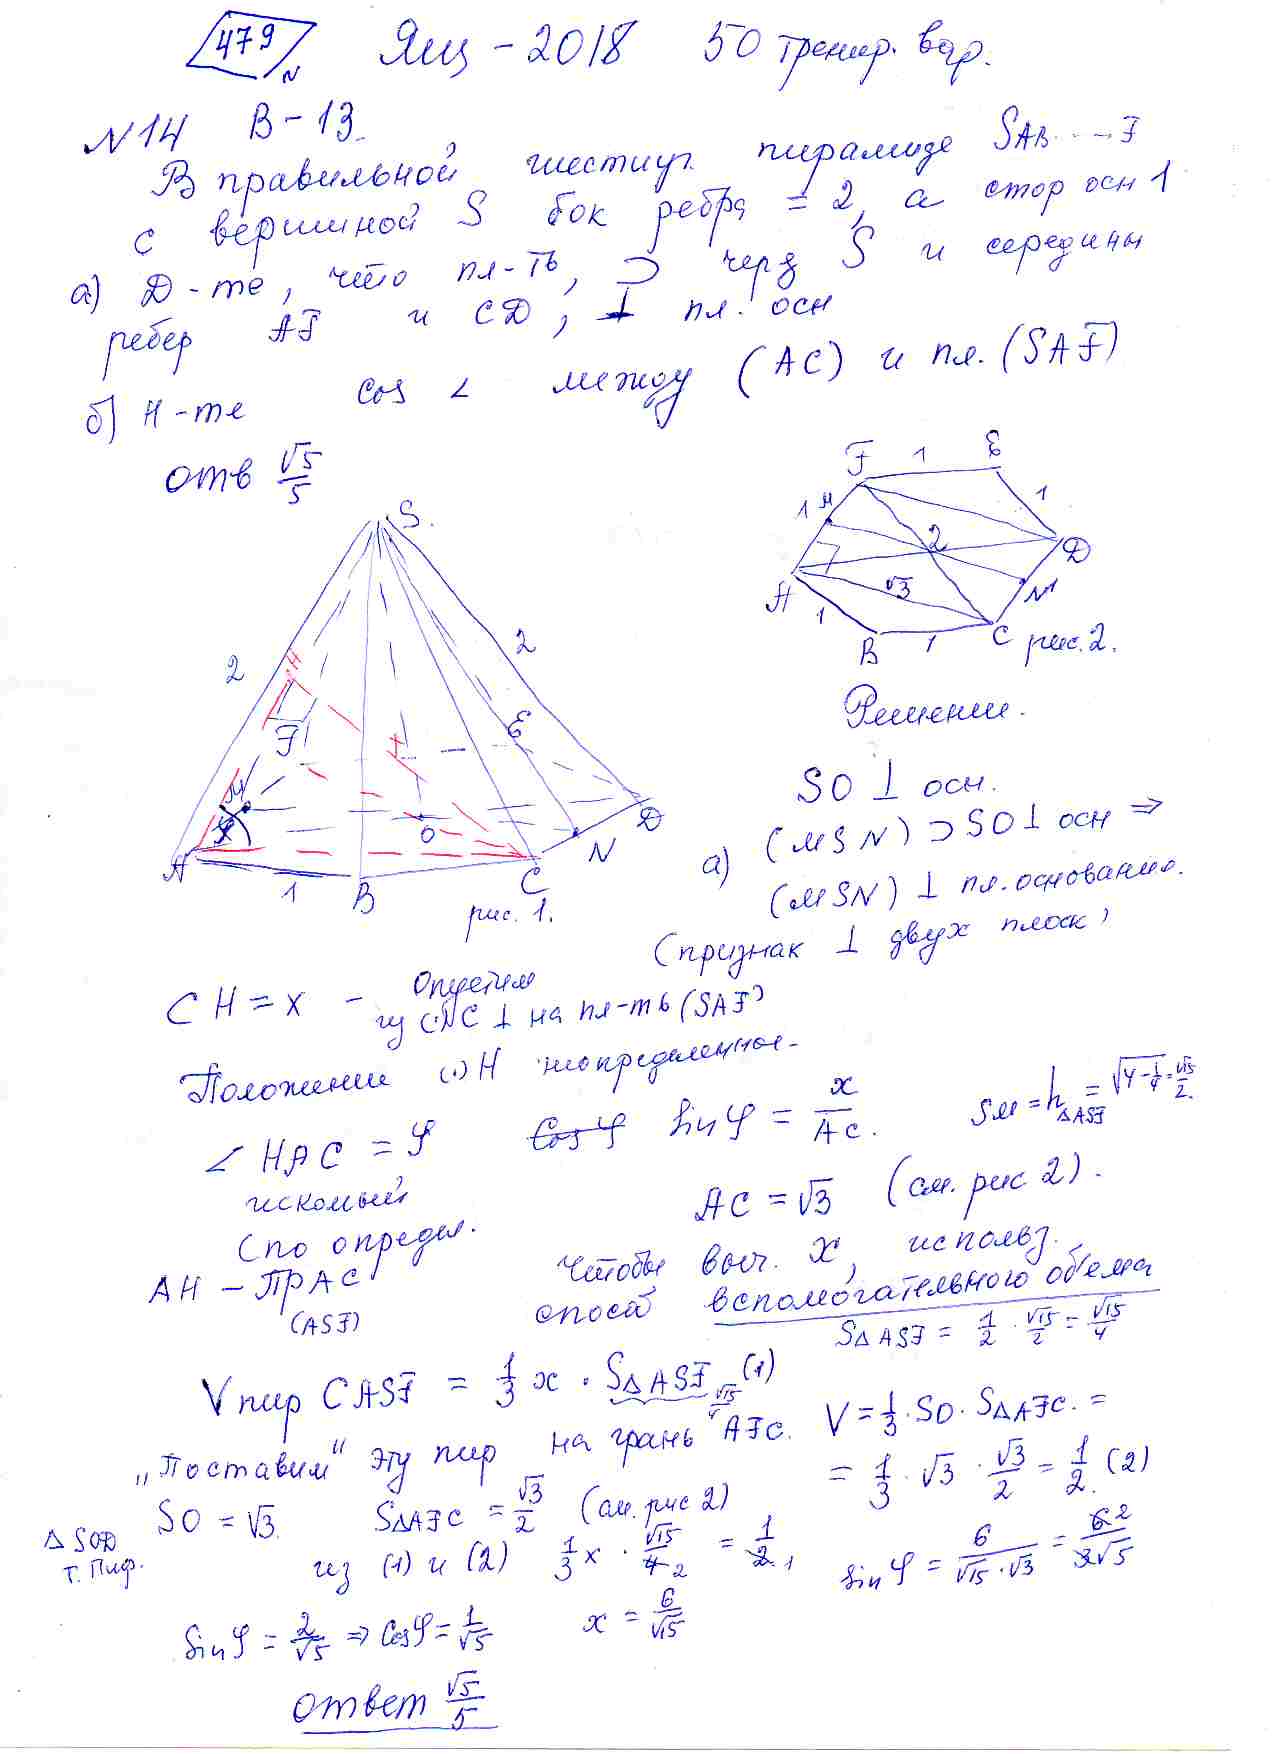 479
N
Ящ - 2018 50 тренир. вар.
N14 В-13
В правильной шестиуг. пирамиде SAB...F
с вершиной S бок ребра = 2, а стор осн 1
а) Д-те, что пл-ть, ⊃ черз S и середины
ребер AF и CD, ⊥ пл. осн
б) Н-те cos ∠ между (AC) и пл. (SAF)
отв √5/5
S
2
2
H
F
E
M
φ
O
D
N
A
1
B
C
рис. 1.
F 1 E
1 M
1
2
D
A
√3
N 1
1
B 1 C рис. 2.
Решение.
SO ⊥ осн.
а) (MSN) ⊃ SO ⊥ осн ⇒
(MSN) ⊥ пл. основания.
(признак ⊥ двух плоск)
CH = x - Опустим
из (·)C ⊥ на пл-ть (SAF)
Положение (·) H неопределенное-
∠ HAC = φ Cos φ Sin φ = x/AC.
SM = h ΔASF = √4-1/4 = √15/2.
искомый
(по определ.
AC = √3 (см. рис 2).
AH - ПР AC
(ASF)
Чтобы выч. x, использ.
способ вспомогательного объема
SΔASF = 1/2 · √15/2 = √15/4
V пир CASF = 1/3 x · SΔASF (1)
√15/4
"Поставим" эту пир на грань AFC. V = 1/3 · SO · SΔAFC. =
= 1/3 · √3 · √3/2 = 1/2. (2)
ΔSOD
т. Пиф.
SO = √3 SΔAFC = √3/2 (см. рис 2)
из (1) и (2) 1/3 x · √15/4 2 = 1/2 1
sin φ = 6/√15·√3 = 6 2/3√5
Sin φ = 2/√5 ⇒ Cos φ = 1/√5 x = 6/√15
ответ √5/5